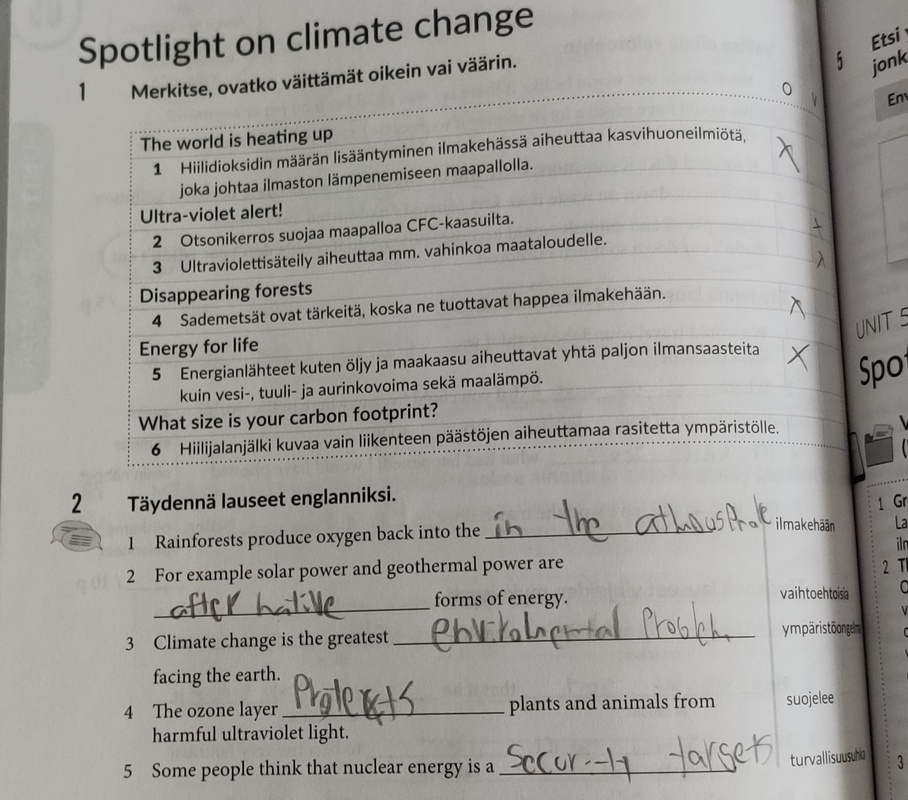 Spotlight on climate change
1 Merkitse, ovatko väittämät oikein vai väärin.
O V
The world is heating up
1 Hiilidioksidin määrän lisääntyminen ilmakehässä aiheuttaa kasvihuoneilmiötä, X
joka johtaa ilmaston lämpenemiseen maapallolla.
Ultra-violet alert!
2 Otsonikerros suojaa maapalloa CFC-kaasuilta. X
3 Ultraviolettisäteily aiheuttaa mm. vahinkoa maataloudelle. X
Disappearing forests
4 Sademetsät ovat tärkeitä, koska ne tuottavat happea ilmakehään. X
Energy for life
5 Energianlähteet kuten öljy ja maakaasu aiheuttavat yhtä paljon ilmansaasteita X
kuin vesi-, tuuli- ja aurinkovoima sekä maalämpö.
What size is your carbon footprint?
6 Hiilijalanjälki kuvaa vain liikenteen päästöjen aiheuttamaa rasitetta ympäristölle.
2 Täydennä lauseet englanniksi.
1 Rainforests produce oxygen back into the in the ilmakehään
2 For example solar power and geothermal power are
after hative forms of energy. vaihtoehtoisia
3 Climate change is the greatest ympäristöongelma
facing the earth.
4 The ozone layer plants and animals from suojelee
harmful ultraviolet light.
5 Some people think that nuclear energy is a targets turvallisuusuhka
5 Etsi
jonk
Env
UNIT 5
Spot
1 Gr
La
ilm
2 Th
3